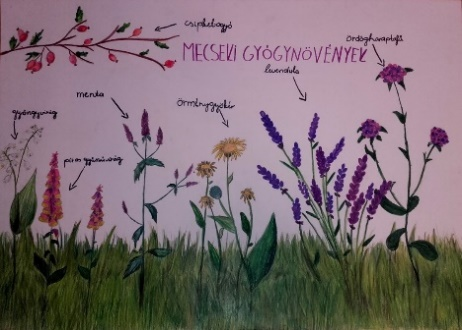 csipkebogyó
MECSEKI GYÓGYNÖVÉNYEK
ördögharaptafű
levendula
menta
örménygyökér
gyöngyvirág
piros gyűszűvirág